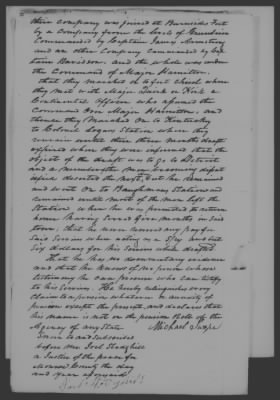 their Company was joined at Burnsides Fort
by a Company from the
Commanded by Captain James Armstrong
and an other Company Commanded by Cap
tain Davidson. and the whole was under
the Command of Major Hamilton.
that they marched to
they met with Major Quirk or Kirk a
Continental Officer who assumed the
Command from Major Hamilton, and
thence they Marched on to Kentucky
to Colonel Logans Station where they
remained until their three months draft
expired where they were informed that the
object of the draft was to go to Detroit
and a number of the men
deserted the next, but he remained
and went on to Baughmans Station and
remained until most of the men left the
Station when he was permitted to return
home having Served five months in said
tour, that he never received any pay for
said Service when acting as a Spy and but
Six dollars for his Service while drafted
That he has no documentary evidence
and that he knows of no person whose
testimony he can procure who can testify
to his Service. He hereby relinquishes every
Claim to a pension whatever or annuity of
pension except the present, and declares that
his name is not on the pension Roll of the
Agency of any State Michael Swope
Sworn to and Subscribed
before me Joel Stodghill
a Justice of the peace for
Monroe County the day
and year aforesaid
Joel Stodghill